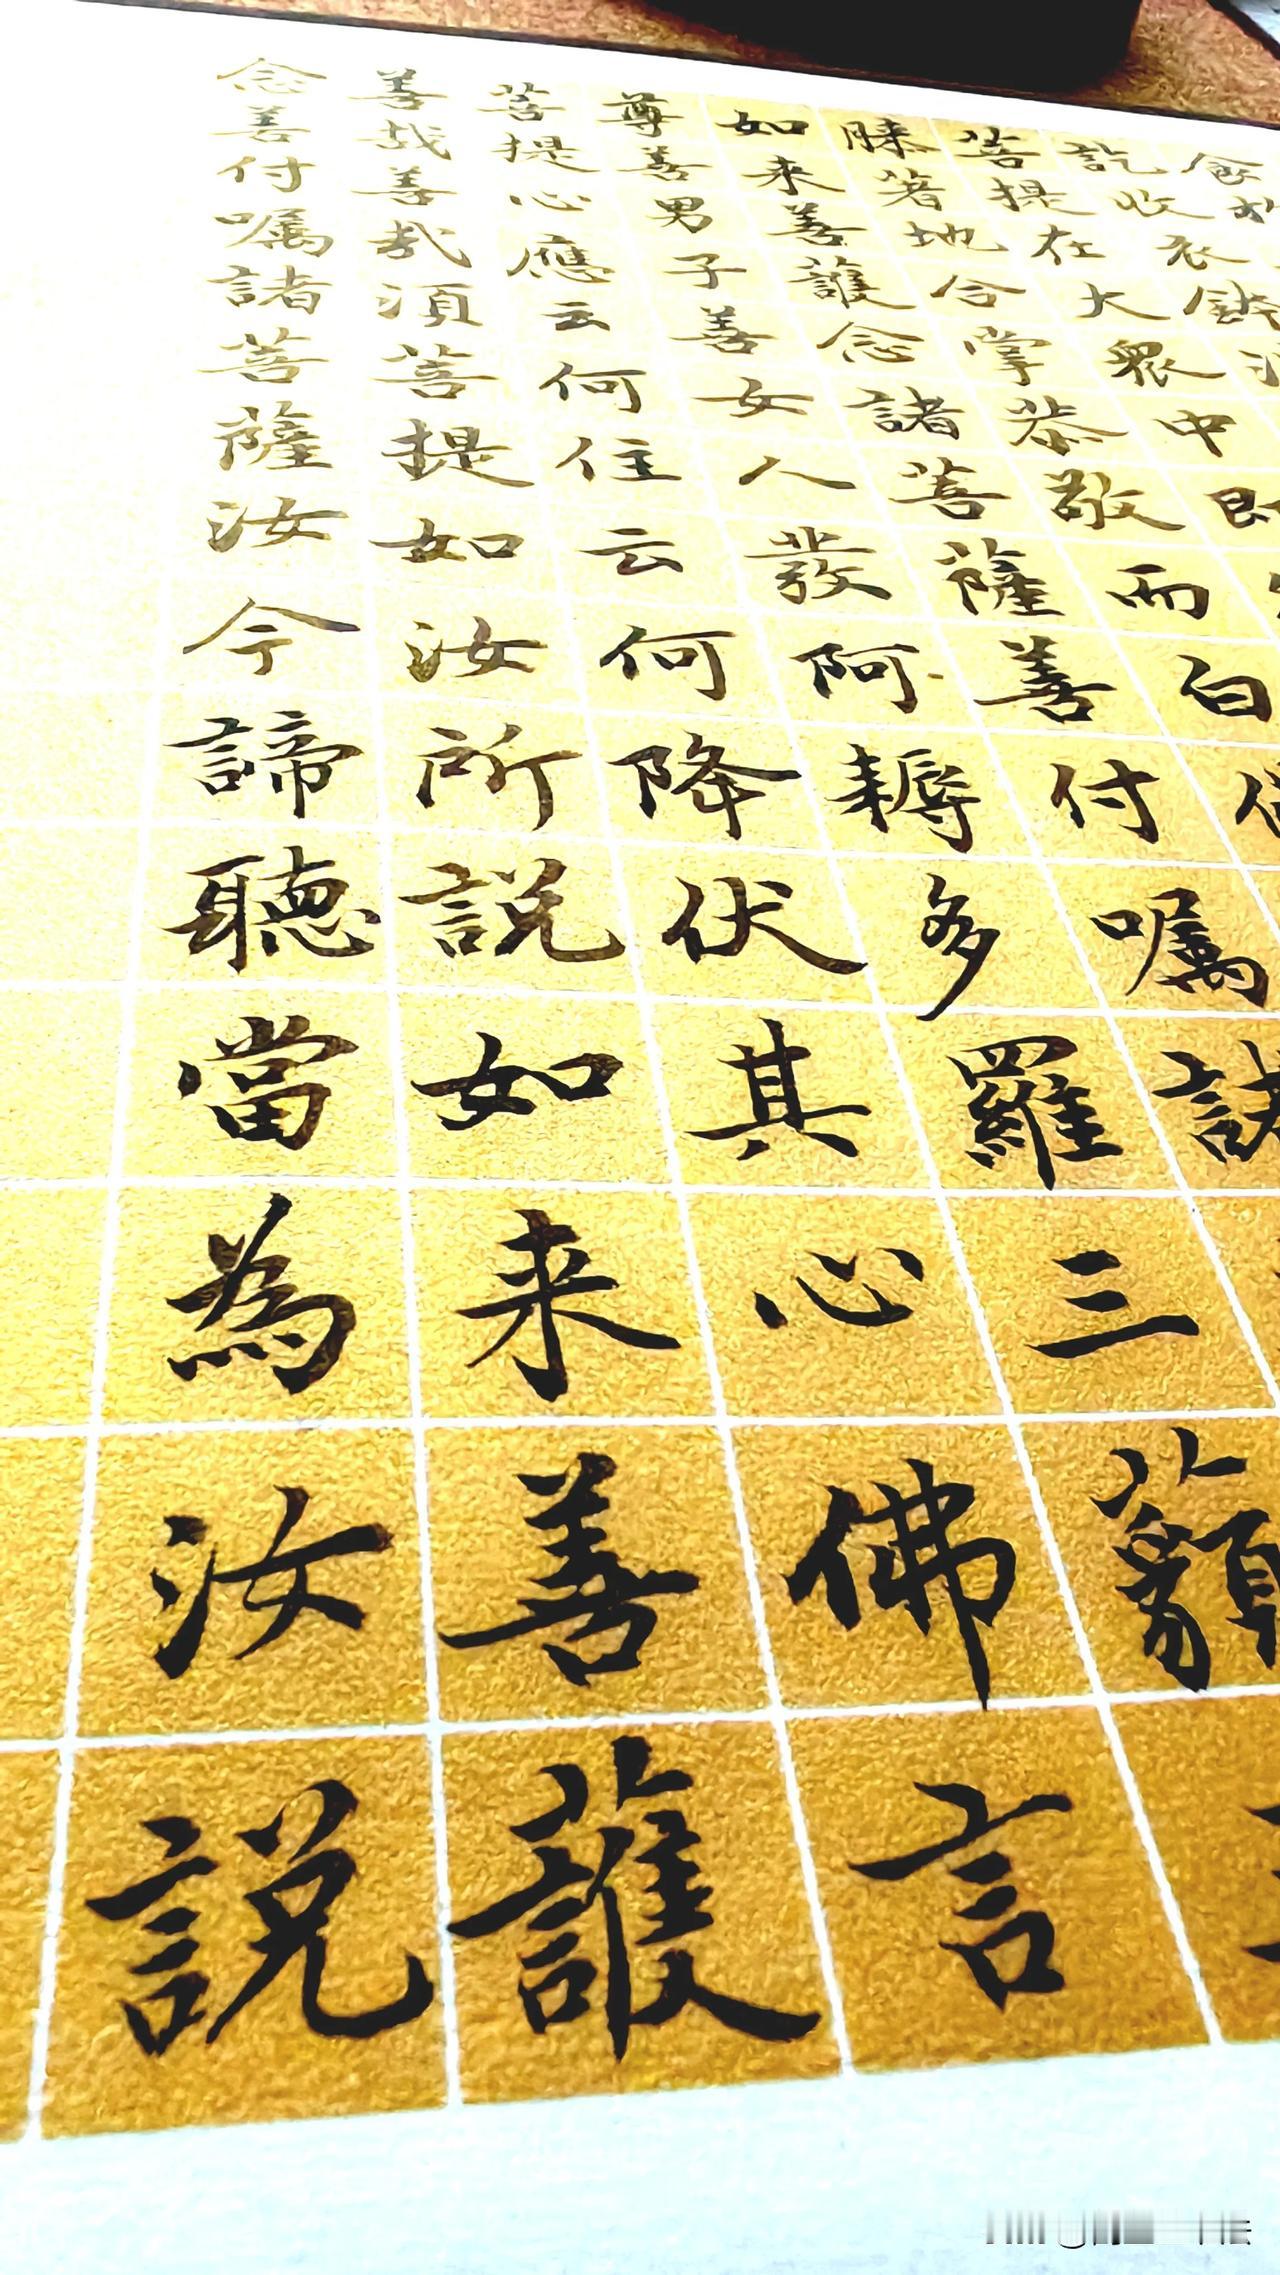 食
訖收衣鉢
菩提在大眾中即
膝著地合掌恭敬而白
如来善護念諸菩薩善付囑諸
尊善男子善女人發阿耨多羅三藐
菩提心應云何住云何降伏其心佛言
善哉善哉須菩提如汝所説如来善護
念善付囑諸菩薩汝今諦聽當為汝説